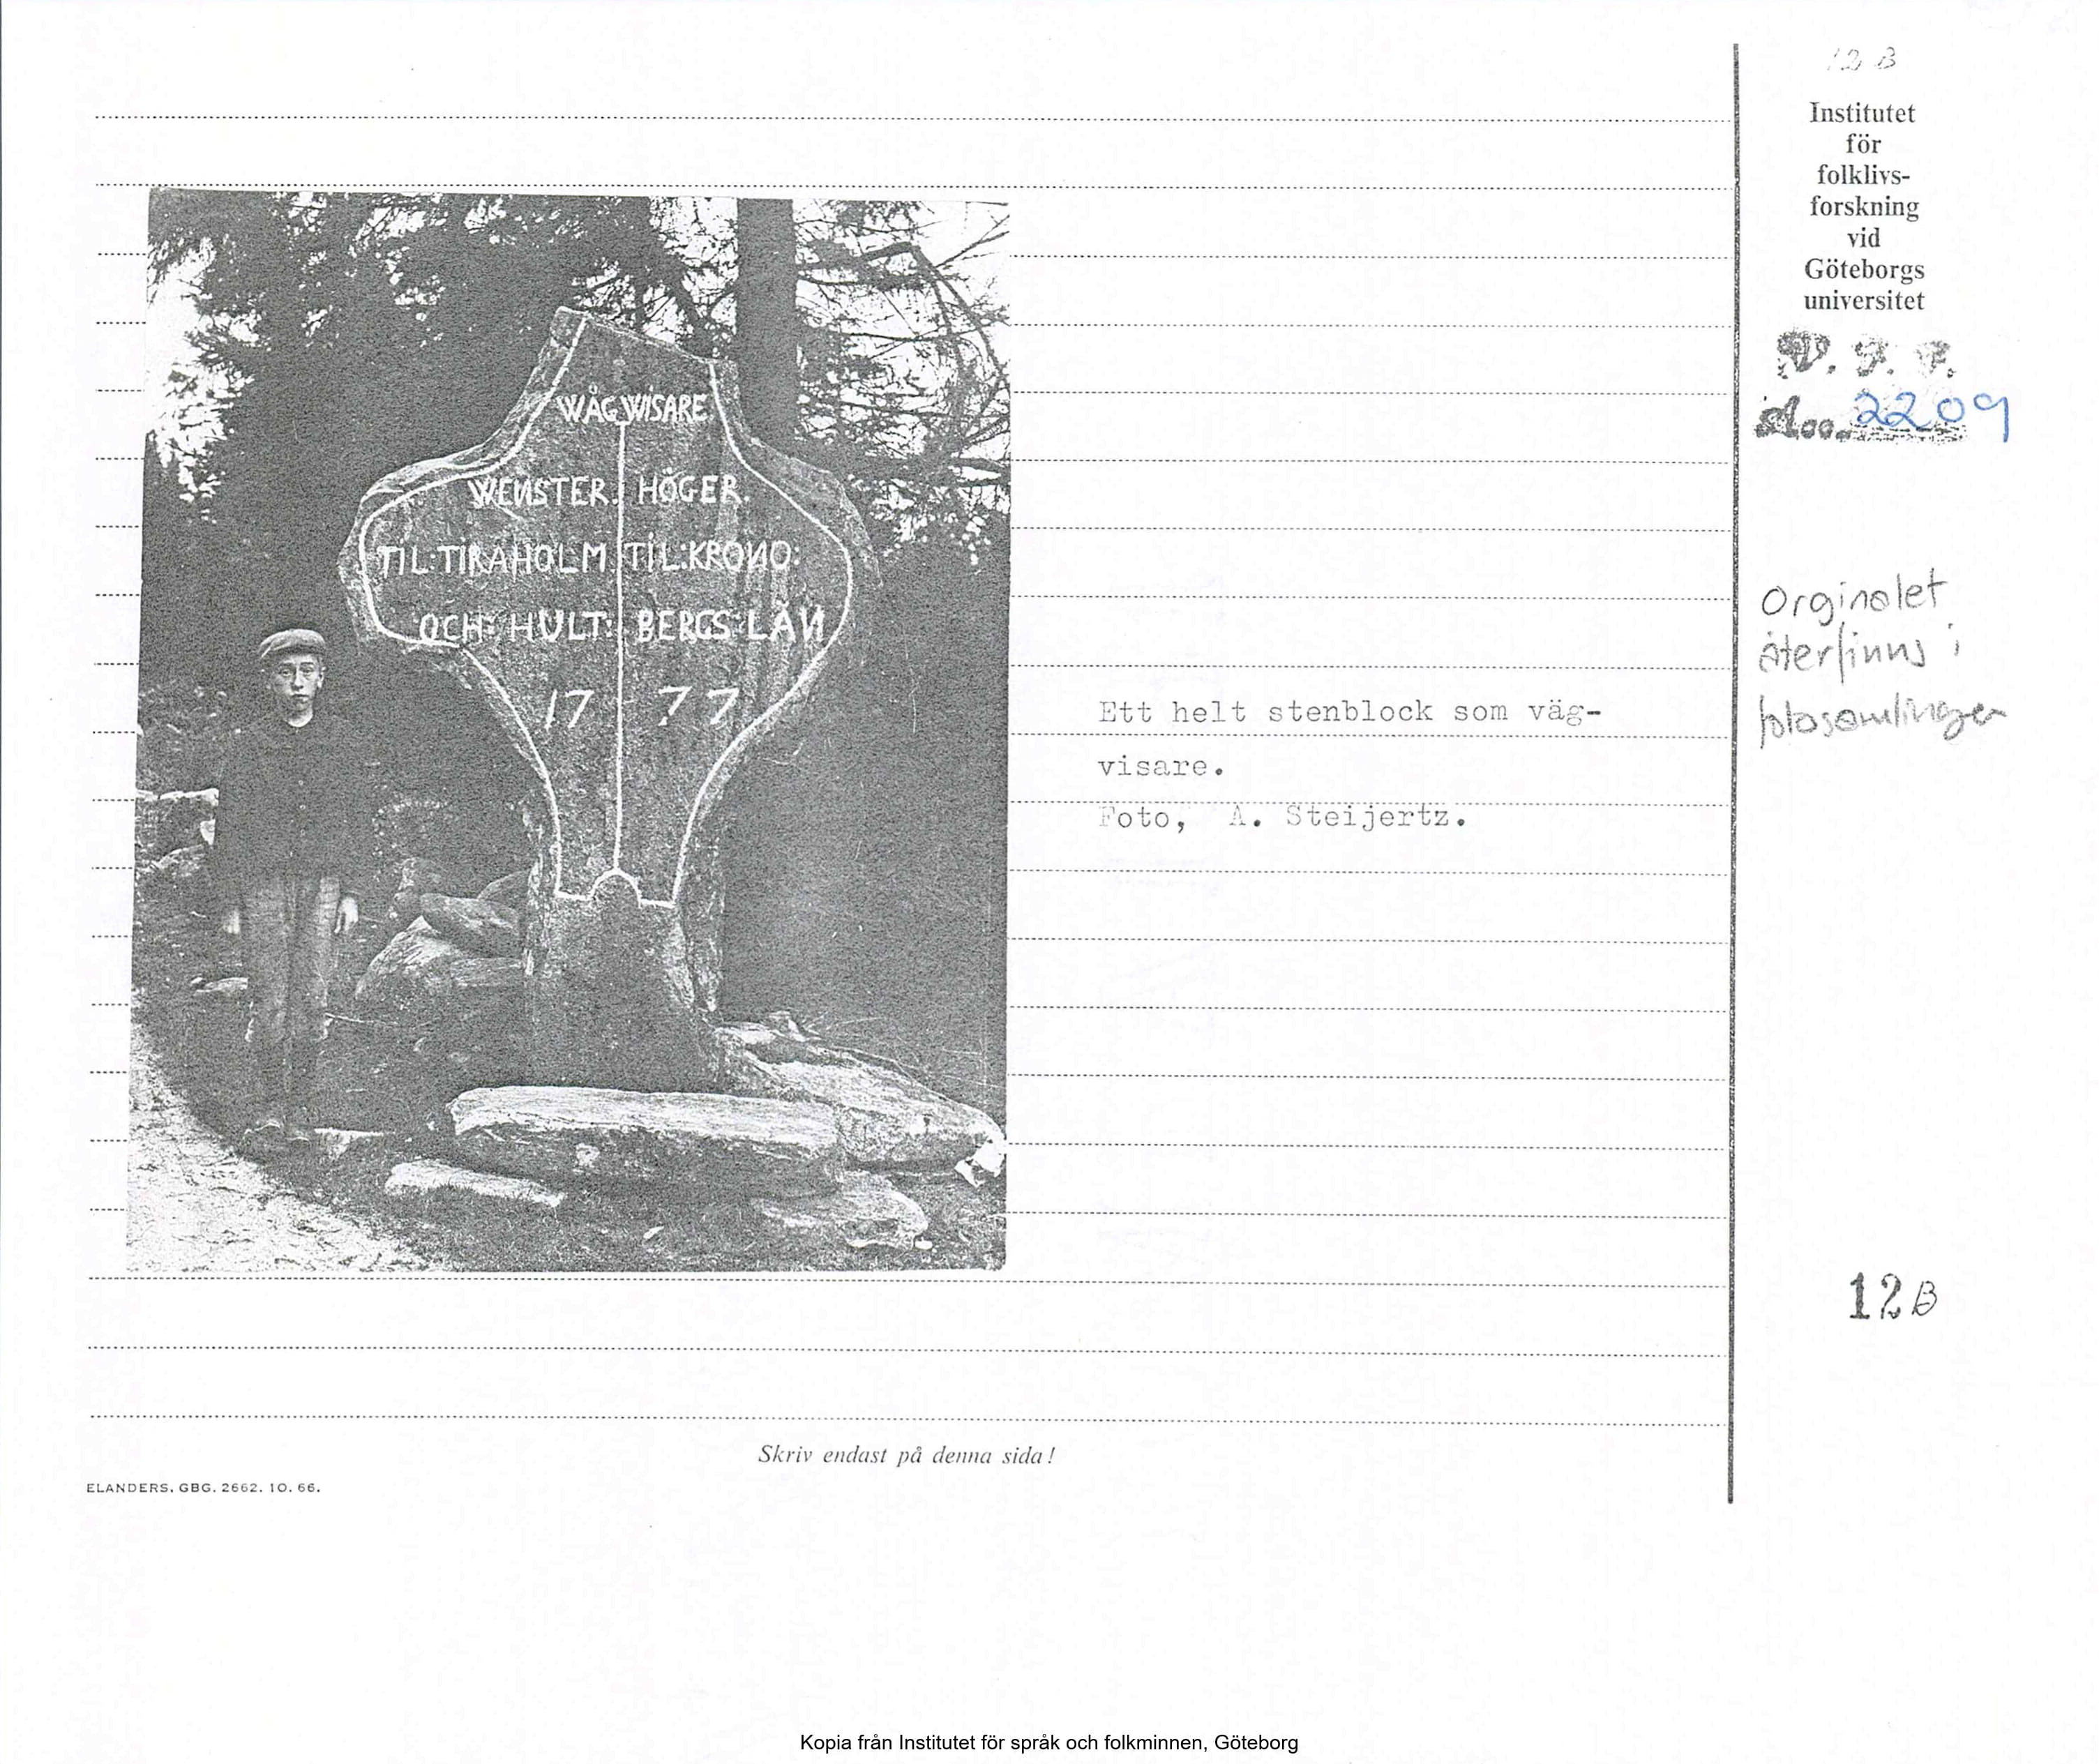 12 B
Institutet
för
folklivs-
forskning
vid
Göteborgs
universitet
V. F. F.
2209
WÄGWISARE
WENSTER. HÖGER.
TIL:TIRAHOLM TIL:KRONO:
OCH: HULT: BERGS:LÄN
17 77
Orginalet
återfinns i
fotosamlingen
Ett helt stenblock som väg-
visare.
Foto, A. Steijertz.
12 B
Skriv endast på denna sida!
ELANDERS. GBG. 2662. 10. 66.
Kopia från Institutet för språk och folkminnen, Göteborg